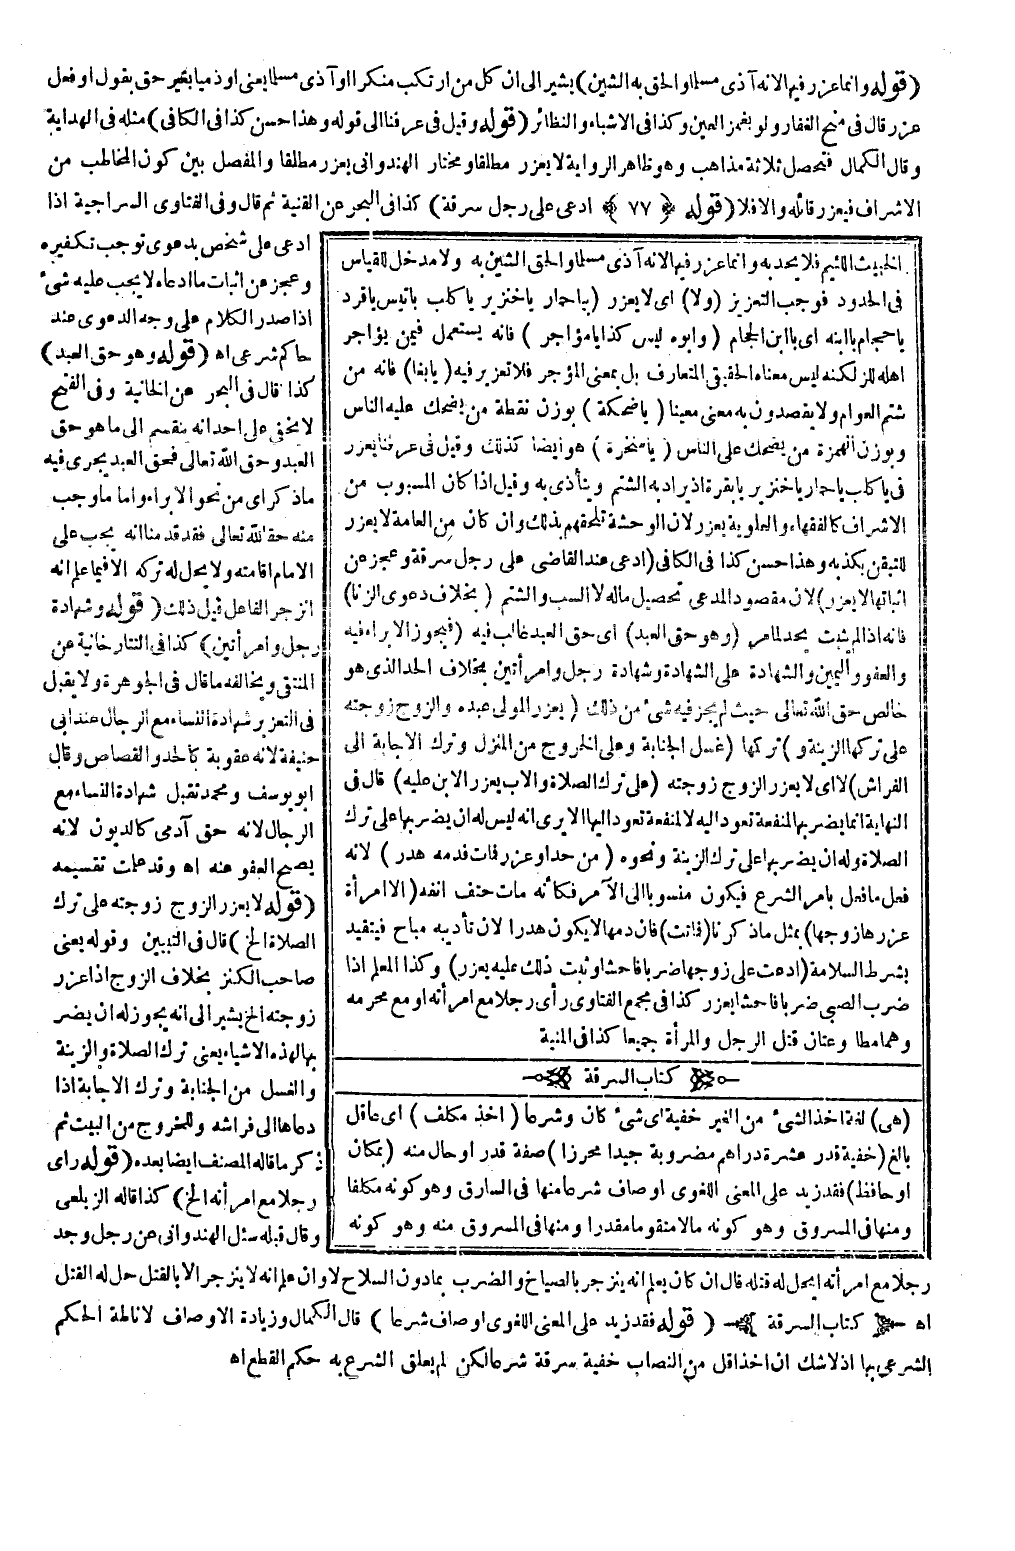 (قوله وانما عزر فيم الانه آذى مسلما والحق به الشين) يشير الى ان كل من ارتكب منكرا او آذى مسلما يعنى او ذميا بغير حق بقول او فعل
عزر قال فى منح الغفار ولو بغمز العين وكذا فى الاشباه والنظائر (قوله وقيل فى عرفنا الى قوله وهذا حسن كذا فى الكافى) مثله فى الهداية
وقال الكمال فتحصل ثلاثة مذاهب وهو ظاهر الرواية لا يعزر مطلقا ومختار الهندوانى يعزر مطلقا والمفصل بين كون المخاطب من
الاشراف فيعزر قائله والا فلا (قوله ﴿ ٧٧ ﴾ ادعى على رجل سرقة) كذا فى البحر عن القنية ثم قال وفى الفتاوى السراجية اذا
ادعى على شخص بدعوى توجب تكفيره
وعجز عن اثبات ما ادعاه لا يجب عليه شئ
اذا صدر الكلام على وجه الدعوى عند
حاكم شرعى اه (قوله وهو حق العبد)
كذا قال فى البحر عن الخانية وفى الفتح
لا يخفى على احد انه ينقسم الى ما هو حق
العبد وحق الله تعالى فحق العبد يجرى فيه
ما ذكر اى من نحو الابراء واما ما وجب
منه حقا لله تعالى فقد قدمنا انه يجب على
الامام اقامته ولا يحل له تركه الا فيما علم انه
انزجر الفاعل قبل ذلك (قوله وشهادة
رجل وامرأتين) كذا فى التتارخانية عن
المنتقى ويخالفه ما قال فى الجوهرة ولا يقبل
فى التعزير شهادة النساء مع الرجال عند ابى
حنيفة لانه عقوبة كالحد والقصاص وقال
ابو يوسف ومحمد تقبل شهادة النساء مع
الرجال لانه حق آدمى كالديون لانه
يصح العفو عنه اه وقد علمت تقسيمه
(قوله لا يعزر الزوج زوجته على ترك
الصلاة الخ) قال فى التبيين وقوله يعنى
صاحب الكنز بخلاف الزوج اذا عزر
زوجته الخ يشير الى انه يجوز له ان يضر
بها لهذه الاشياء يعنى ترك الصلاة والزينة
والغسل من الجنابة وترك الاجابة اذا
دعاها الى فراشه وللخروج من البيت ثم
ذكر ما قاله المصنف ايضا بعده (قوله راى
رجلا مع امرأته الخ) كذا قاله الزيلعى
وقال قبله سئل الهندوانى عن رجل وجد
الخبيث اللئيم فلا يحد به وانما عزر فيم الانه آذى مسلما والحق الشين به ولا مدخل للقياس
فى الحدود فوجب التعزير (ولا) اى لا يعزر (بياحمار ياخنزير ياكلب ياتيس ياقرد
ياحجام يا ابنه اى يا ابن الحجام (وابوه ليس كذا يامؤاجر) فانه يستعمل فيمن يؤاجر
اهله للزنا لكنه ليس معناه الحقيقى المتعارف بل بمعنى المؤجر فلا تعزير فيه (يابغا) فانه من
شتم العوام ولا يقصدون به معنى معينا (ياضحكة) بوزن نقطة من يضحك عليه الناس
وبوزن الهمزة من يضحك على الناس (ياسخرة) هو ايضا كذلك وقيل فى عرفنا يعزر
فى ياكلب ياحمار ياخنزير يابقرة اذ يراد به الشتم ويتأذى به وقيل اذا كان المسبوب من
الاشراف كالفقهاء والعلوية يعزر لان الوحشة تلحقهم بذلك وان كان من العامة لا يعزر
للتيقن بكذبه وهذا حسن كذا فى الكافى (ادعى عند القاضى على رجل سرقة وعجز عن
اثباتها لا يعزر) لان مقصود المدعى تحصيل ماله لا السب والشتم (بخلاف دعوى الزنا)
فانه اذا لم يثبت يحد لما مر (وهو حق العبد) اى حق العبد غالب فيه (فيجوز الابراء فيه
والعفو واليمين والشهادة على الشهادة وشهادة رجل وامرأتين بخلاف الحد الذى هو
خالص حق الله تعالى حيث لم يجز فيه شئ من ذلك (يعزر المولى عبده والزوج زوجته
على تركها الزينة و) تركها (غسل الجنابة وعلى الخروج من المنزل وترك الاجابة الى
الفراش) لا اى لا يعزر الزوج زوجته (على ترك الصلاة والاب يعزر الابن عليه) قال فى
النهاية انما يضربها لمنفعة تعود اليه لا لمنفعة تعود اليها الا يرى انه ليس له ان يضربها على ترك
الصلاة وله ان يضربها على ترك الزينة ونحوه (من حد او عزر فمات فدمه هدر) لانه
فعل ما فعل بامر الشرع فيكون منسوبا الى الآمر فكأنه مات حتف انفه (الا امرأة
عزرها زوجها) بمثل ما ذكرنا (فماتت) فان دمها لا يكون هدرا لان تأديبه مباح فيتقيد
بشرط السلامة (ادعت على زوجها ضربا فاحشا وثبت ذلك عليه يعزر) وكذا المعلم اذا
ضرب الصبى ضربا فاحشا يعزر كذا فى مجمع الفتاوى رأى رجلا مع امرأته او مع محرمه
وهما مطاوعتان قتل الرجل والمرأة جميعا كذا فى المنية
كتاب السرقة
(هى) لغة اخذ الشئ من الغير خفية اى شئ كان وشرعا (اخذ مكلف) اى عاقل
بالغ (خفية قدر عشرة دراهم مضروبة جيدا محرزا) صفة قدر او حال منه (بمكان
او حافظ) فقد زيد على المعنى اللغوى اوصاف شرعا منها فى السارق وهو كونه مكلفا
ومنها فى المسروق وهو كونه مالا متقوما مقدرا ومنها فى المسروق منه وهو كونه
رجلا مع امرأته ايحل له قتله قال ان كان يعلم انه ينزجر بالصياح والضرب بما دون السلاح لا وان علم انه لا ينزجر الا بالقتل حل له القتل
اه كتاب السرقة (قوله فقد زيد على المعنى اللغوى اوصاف شرعا) قال الكمال وزيادة الاوصاف لاناطة الحكم
الشرعى بها اذ لا شك ان اخذ اقل من النصاب خفية سرقة شرعا لكن لم يعلق الشرع به حكم القطع اه